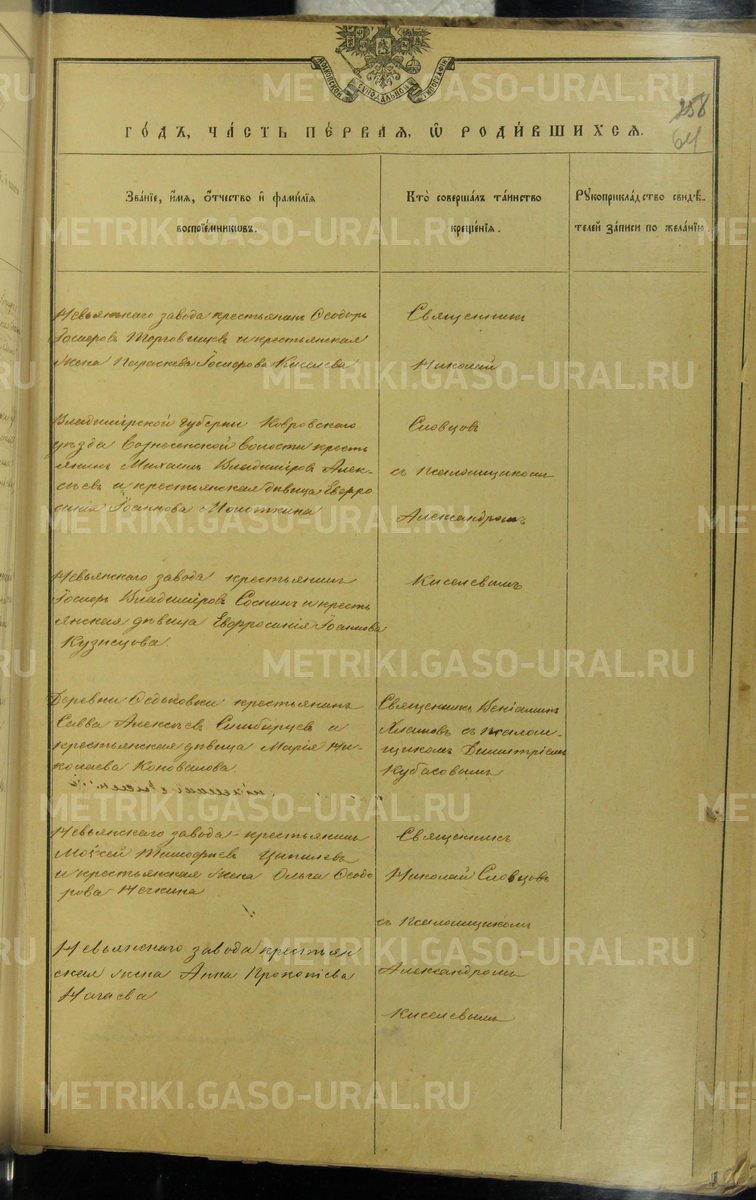 МОСКОВСКОЙ СѴНОДАЛЬНОЙ ТИПОГРАФІИ
258
64
ГО́ДЪ, ЧА́СТЬ ПЕ́РВАЯ, Ѿ РОДИ́ВШИХСЯ.
Зва́нїе, и́мя, ѻ́тчество и фами́лїя
воспрїе́мникѡвъ.
Кто̀ соверша́лъ та́инство
креще́нїя.
Рꙋкоприкла́дство свидѣ́-
телей за́писи по жела́нїю.
Невьянскаго завода крестьянинъ Ѳеодоръ
Іосифовъ Торговицовъ и крестьянская
жена Параскева Іосифова Киселева
Священникъ
Николай
Владимірской губерніи Ковровскаго
уѣзда Вознесенской волости кресть
янинъ Михаилъ Владиміровъ Алек-
сѣевъ и крестьянская дѣвица Евфро
синія Іоаннова
Словцовъ
съ псаломщикомъ
Александромъ
Невьянскаго завода крестьянинъ
Іосифъ Владиміровъ Соснинъ и кресть
янская дѣвица Евфросинія Іоаннова
Кузнецова
Киселевымъ
Деревни Ѳедьковки крестьянинъ
Савва Алексѣевъ Симбирцевъ и
крестьянская дѣвица Марія Ни-
колаева Коновалова
Священникъ Веніаминъ
съ псалом-
щикомъ Димитріемъ
Кубасовымъ
Невьянскаго завода крестьянинъ
Моѵсей Тимофѣевъ
и крестьянская жена Ольга Ѳеодо
рова Нечкина
Священникъ
Николай Словцовъ
съ псаломщикомъ
Невьянскаго завода крестьян
ская жена Анна Прокопіева
Нагаева
Александромъ
Киселевымъ
METRIKI.GASO-URAL.RU